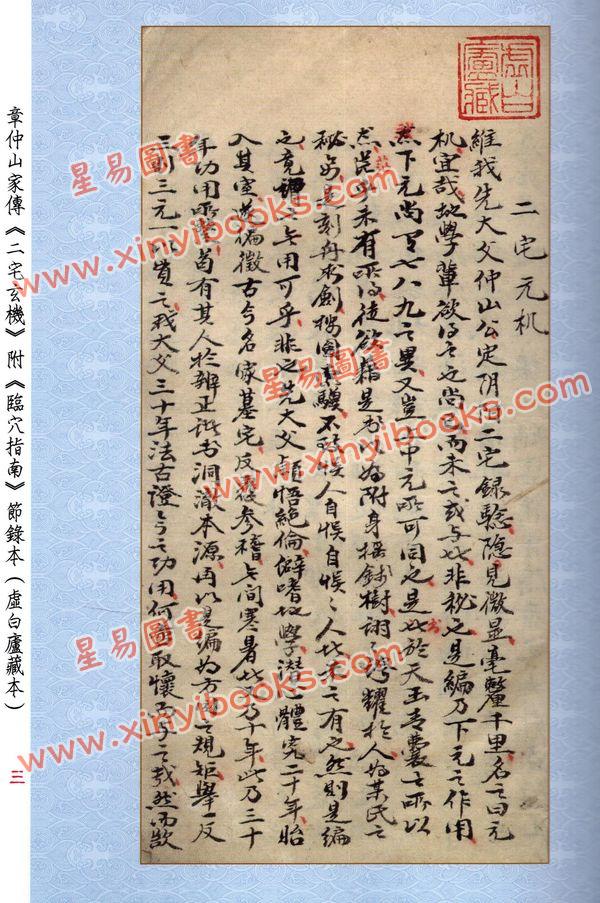 二宅元机
維我先大父仲山公定阴阳二宅錄騐隐見微显毫釐千里名之曰元
机宜哉地學輩欲得之也尚已而未之或与此非秘之是編乃下元之作用
下元尚有七八九之異又豈上中元所可同之是此於天玉青囊之所以
未有所得徒欲藉是書以为附身摇錢樹誇耀於人为某氏之
秘是刻舟求劍按圖索驥不致悞人自悞自悞悞人此未之有也然則是編
之竟謂之無用可乎非也先大父颖悟絕倫癖嗜地學潜心體究二十年始
入其室遂徧徵古今名家墓宅反覆参稽無间寒暑此又乃十年此乃三十
年功用所蓄有其人於辨正诸书洞澈本源再以是編为方圆之規矩舉一反
三則三元一以贯之我大父三十年法古證今之功用何取懷而予之哉然而歆
虛白廬藏
章仲山家傳《二宅玄機》附《臨穴指南》節錄本（虛白廬藏本）
三
星易圖書
www.xinyibooks.com
星易圖書
www.xinyibooks.com
星易圖書
www.xinyibooks.com
星易圖書
www.xinyibooks.com